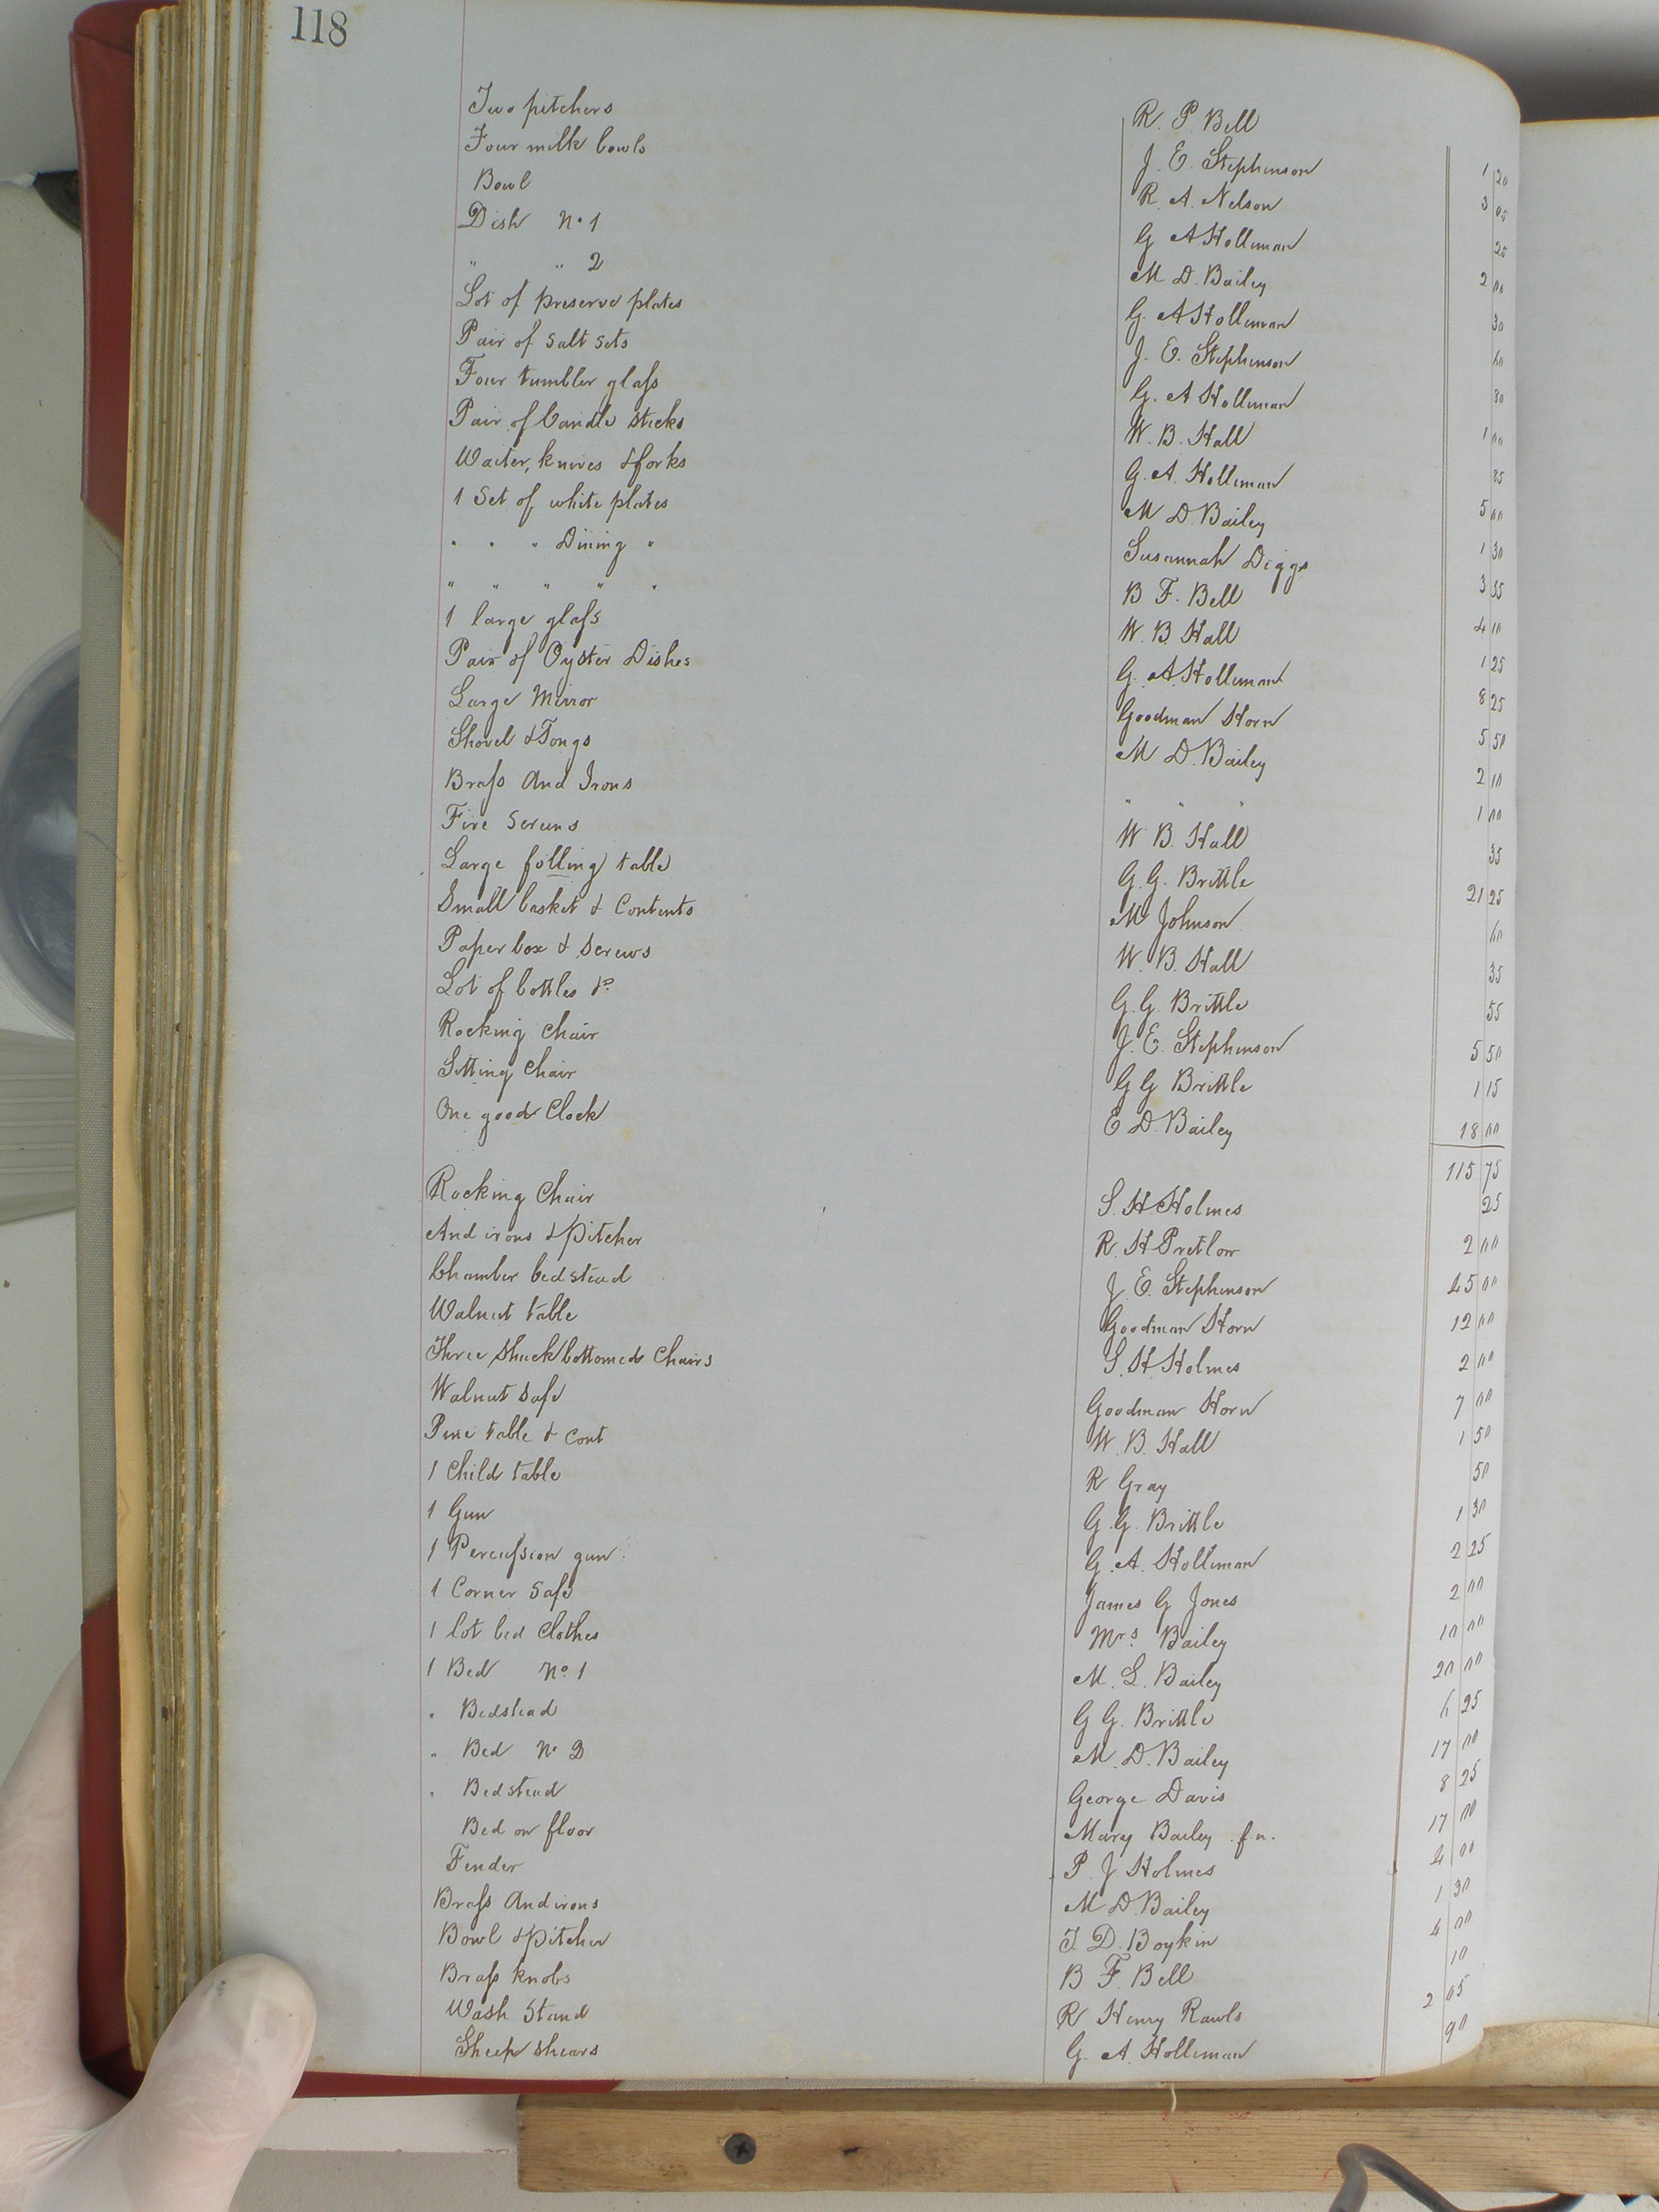 118
Two pitchers R. P. Bell 1 20
Four milk bowls J. E. Stephenson 3 05
Bowl R. A. Nelson 25
Dish No 1 G A Holleman 2 00
" " 2 M D. Bailey 30
Lot of preserve plates G. A Holleman 60
Pair of Salt Sets J. E. Stephenson 80
Four tumbler glass G. A Holleman 1 00
Pair of Candle sticks W. B. Hall 85
Waiter, knives & forks G. A. Holleman 5 00
1 Set of white plates M D. Bailey 1 30
" " " Dining " Susannah Diggs 3 35
" " " " " B F. Bell 4 10
1 large glass W. B. Hall 1 25
Pair of Oyster Dishes G. A. Holleman 8 25
Large Mirror Goodman Horn 5 50
Shovel & Tongs M D. Bailey 2 10
Brass And Irons " " " 1 00
Fire Screens W B. Hall 35
Large folling table G. G. Brittle 21 25
Small basket & Contents M Johnson 60
Paper box & screws W. B. Hall 35
Lot of bottles &c G. G. Brittle 55
Rocking Chair J. E. Stephenson 5 50
Sitting Chair G G Brittle 1 15
One good Clock E D. Bailey 18 00
115 75
Rocking Chair S. H Holmes 25
And irons & Pitcher R. H Pretlow 2 00
Chamber bedstead J. E. Stephenson 45 00
Walnut table Goodman Horn 12 00
Three Shuck bottomed Chairs S. H. Holmes 2 00
Walnut Safe Goodman Horn 7 00
Pine table & cont W. B. Hall 1 50
1 Child table R Gray 50
1 Gun G. G. Brittle 1 30
1 Percussion gun G. A. Holleman 2 25
1 Corner Safe James G Jones 2 00
1 lot bed Clothes Mrs. Bailey 10 00
1 Bed No. 1 M. L. Bailey 20 00
" Bedstead G G. Brittle 6 25
" Bed No 2 M. D. Bailey 17 00
" Bedstead George Davis 8 25
Bed on floor Mary Bailey f. n. 17 00
Fender P. J. Holmes 4 00
Brass Andirons M D. Bailey 1 30
Bowl & Pitcher T. D. Boykin 4 00
Brass knobs B F. Bell 10
Wash Stand R Henry Rawls 2 05
Sheep shears G. A. Holleman 90